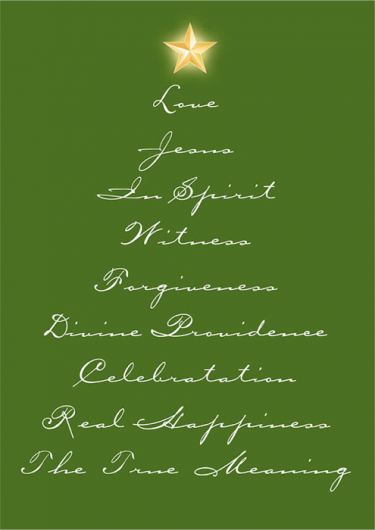 Love
Jesus
In Spirit
Witness
Forgiveness
Divine Providence
Celebratation
Real Happiness
The True Meaning